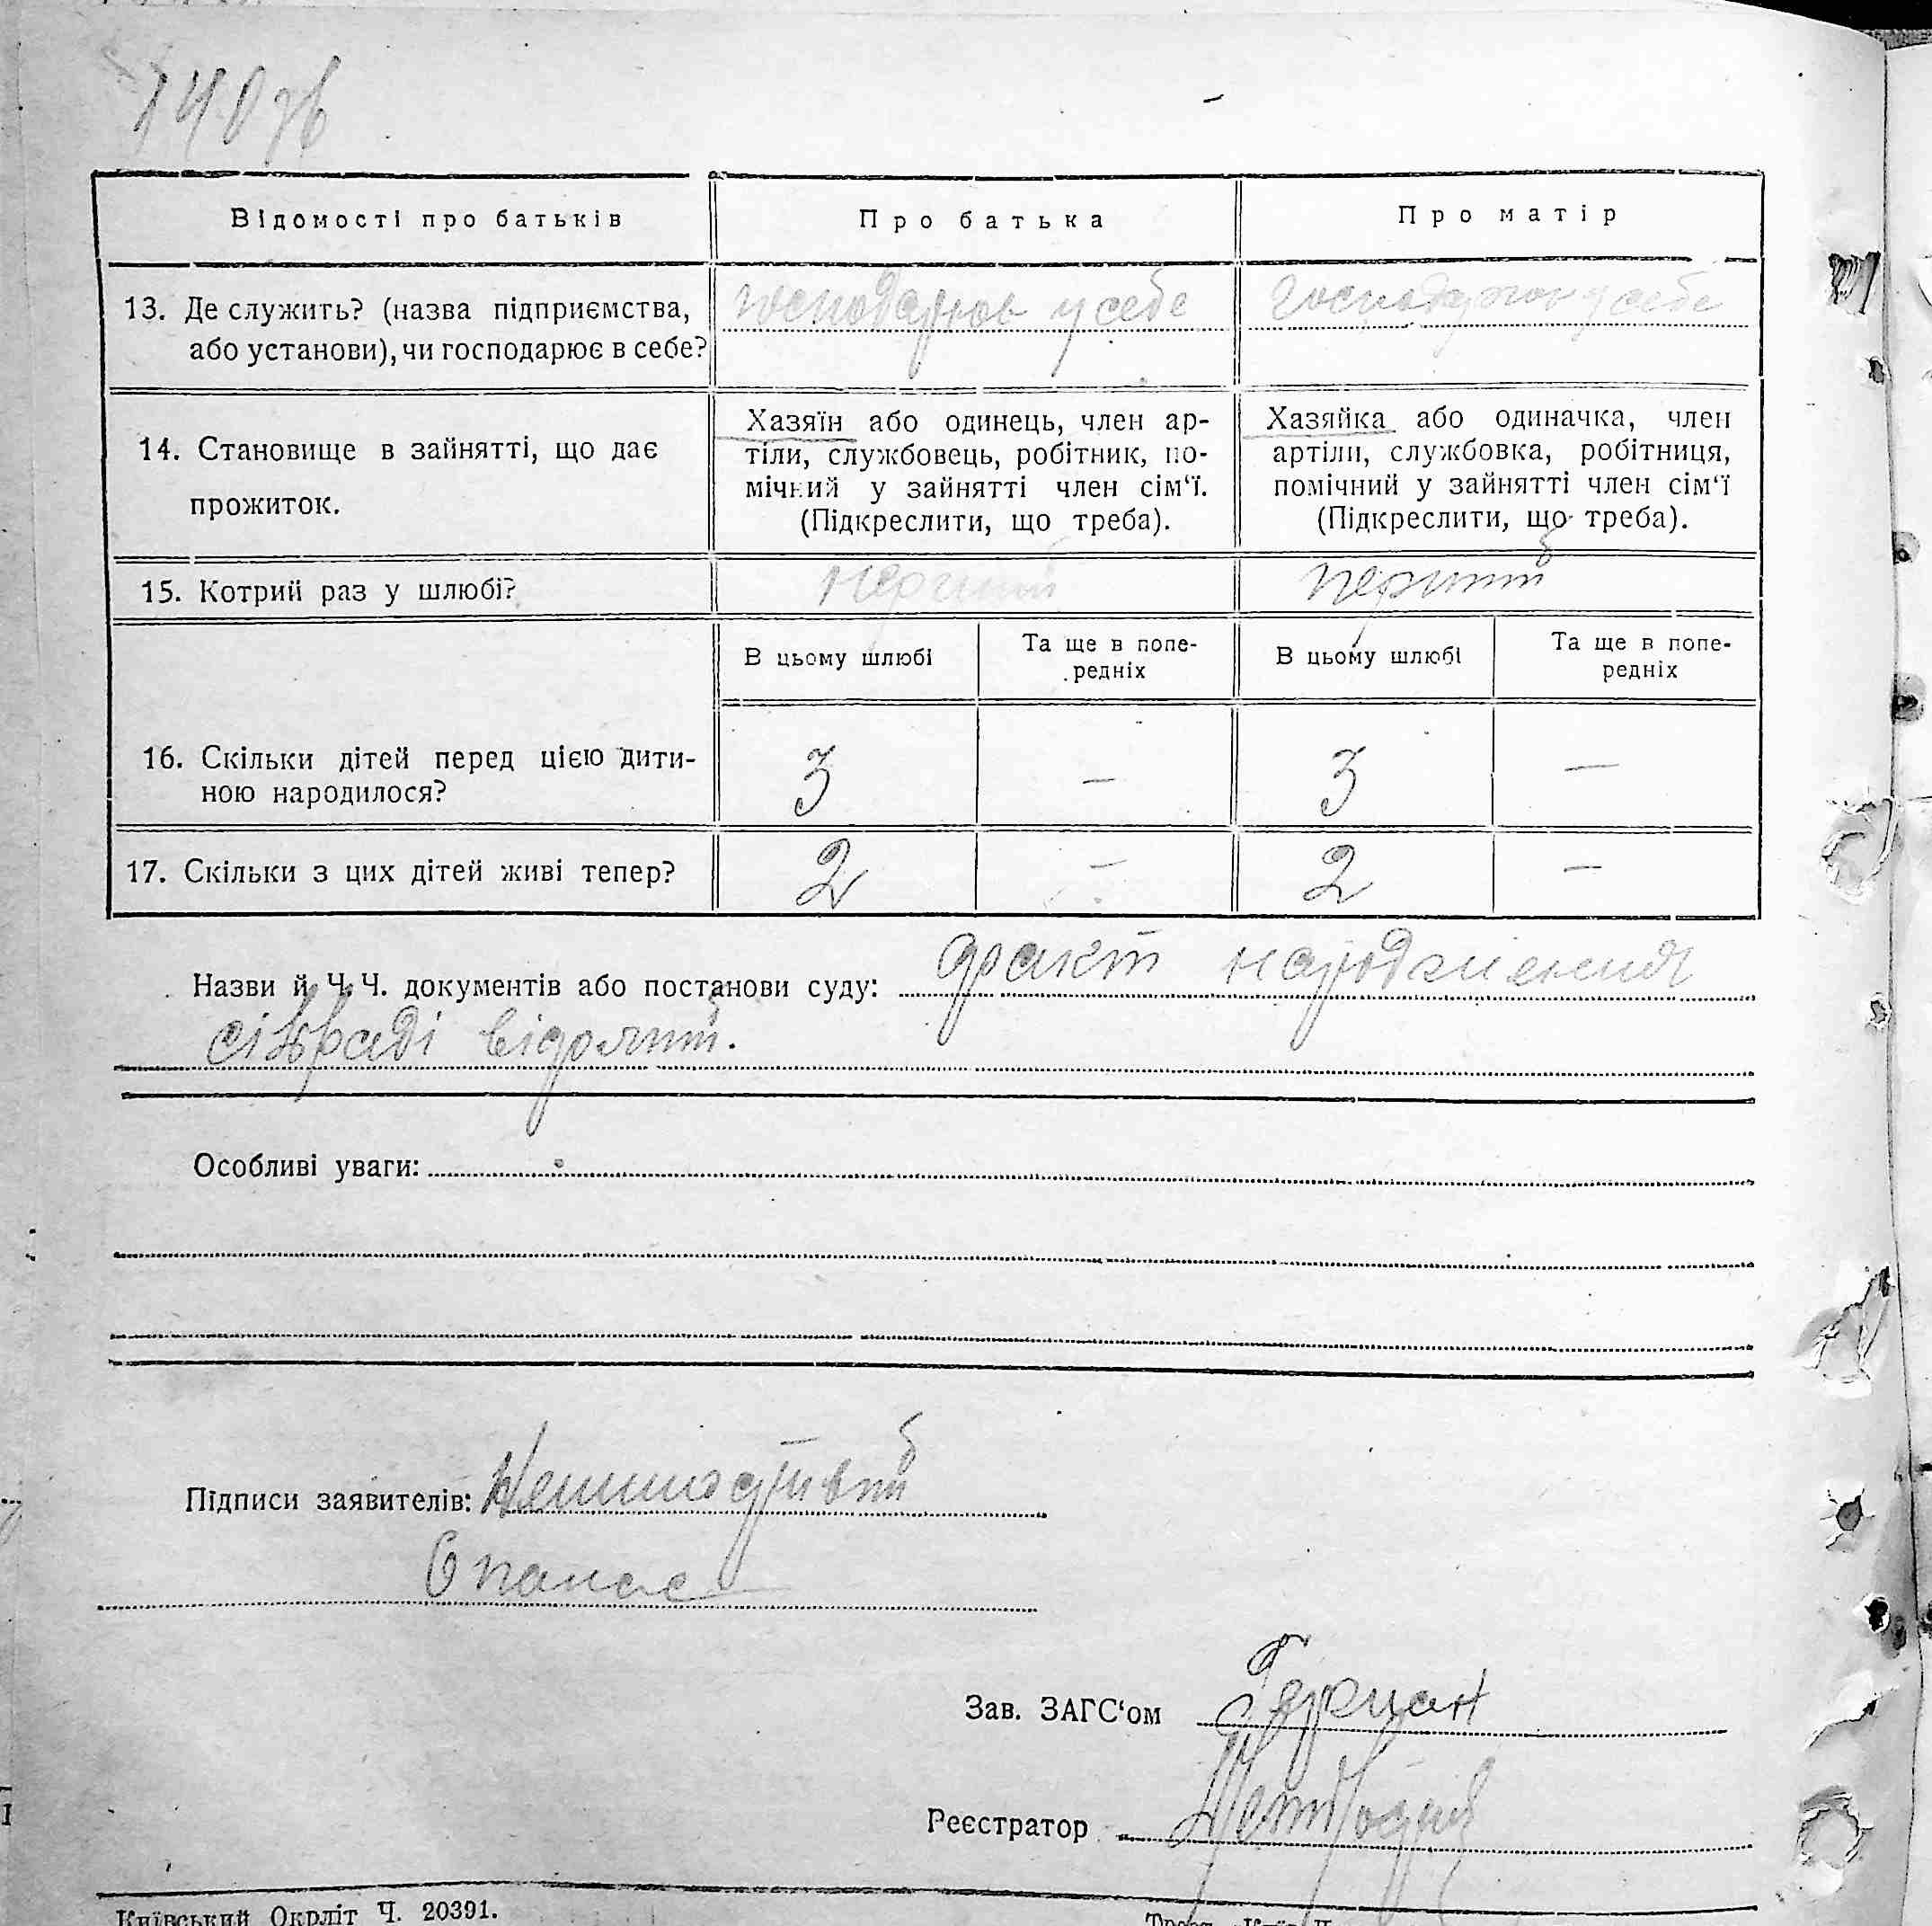 140 зв
Відомості про батьків
Про батька
Про матір
13. Де служить? (назва підприємства, або установи), чи господарює в себе?
господарює у себе
господарює у себе
14. Становище в зайнятті, що дає прожиток.
Хазяїн або одинець, член ар-
тіли, службовець, робітник, по-
мічний у зайнятті член сім‘ї.
(Підкреслити, що треба).
Хазяйка або одиначка, член
артіли, службовка, робітниця,
помічний у зайнятті член сім‘ї
(Підкреслити, що треба).
15. Котрий раз у шлюбі?
перший
перший
В цьому шлюбі
Та ще в попе-
редніх
В цьому шлюбі
Та ще в попе-
редніх
16. Скільки дітей перед цією дити-
ною народилося?
3
—
3
—
17. Скільки з цих дітей живі тепер?
2
—
2
—
Назви й Ч.Ч. документів або постанови суду: факт народження
сільраді відомий.
Особливі уваги:
Підписи заявителів:
Опанас
Зав. ЗАГС‘ом
Реєстратор
Київський Окрліт Ч. 20391.